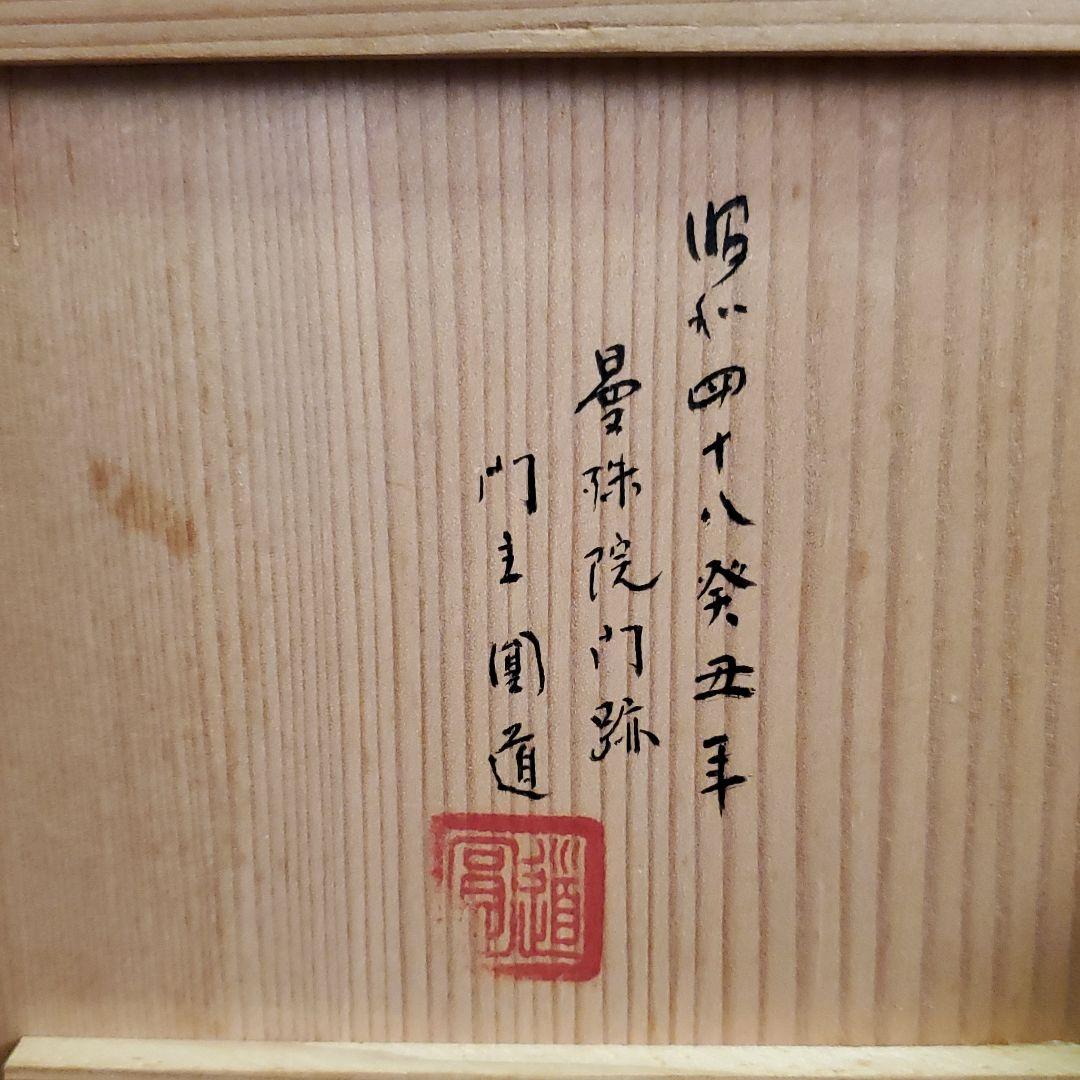 昭和四十八癸丑年
曼殊院門跡
門主圓道